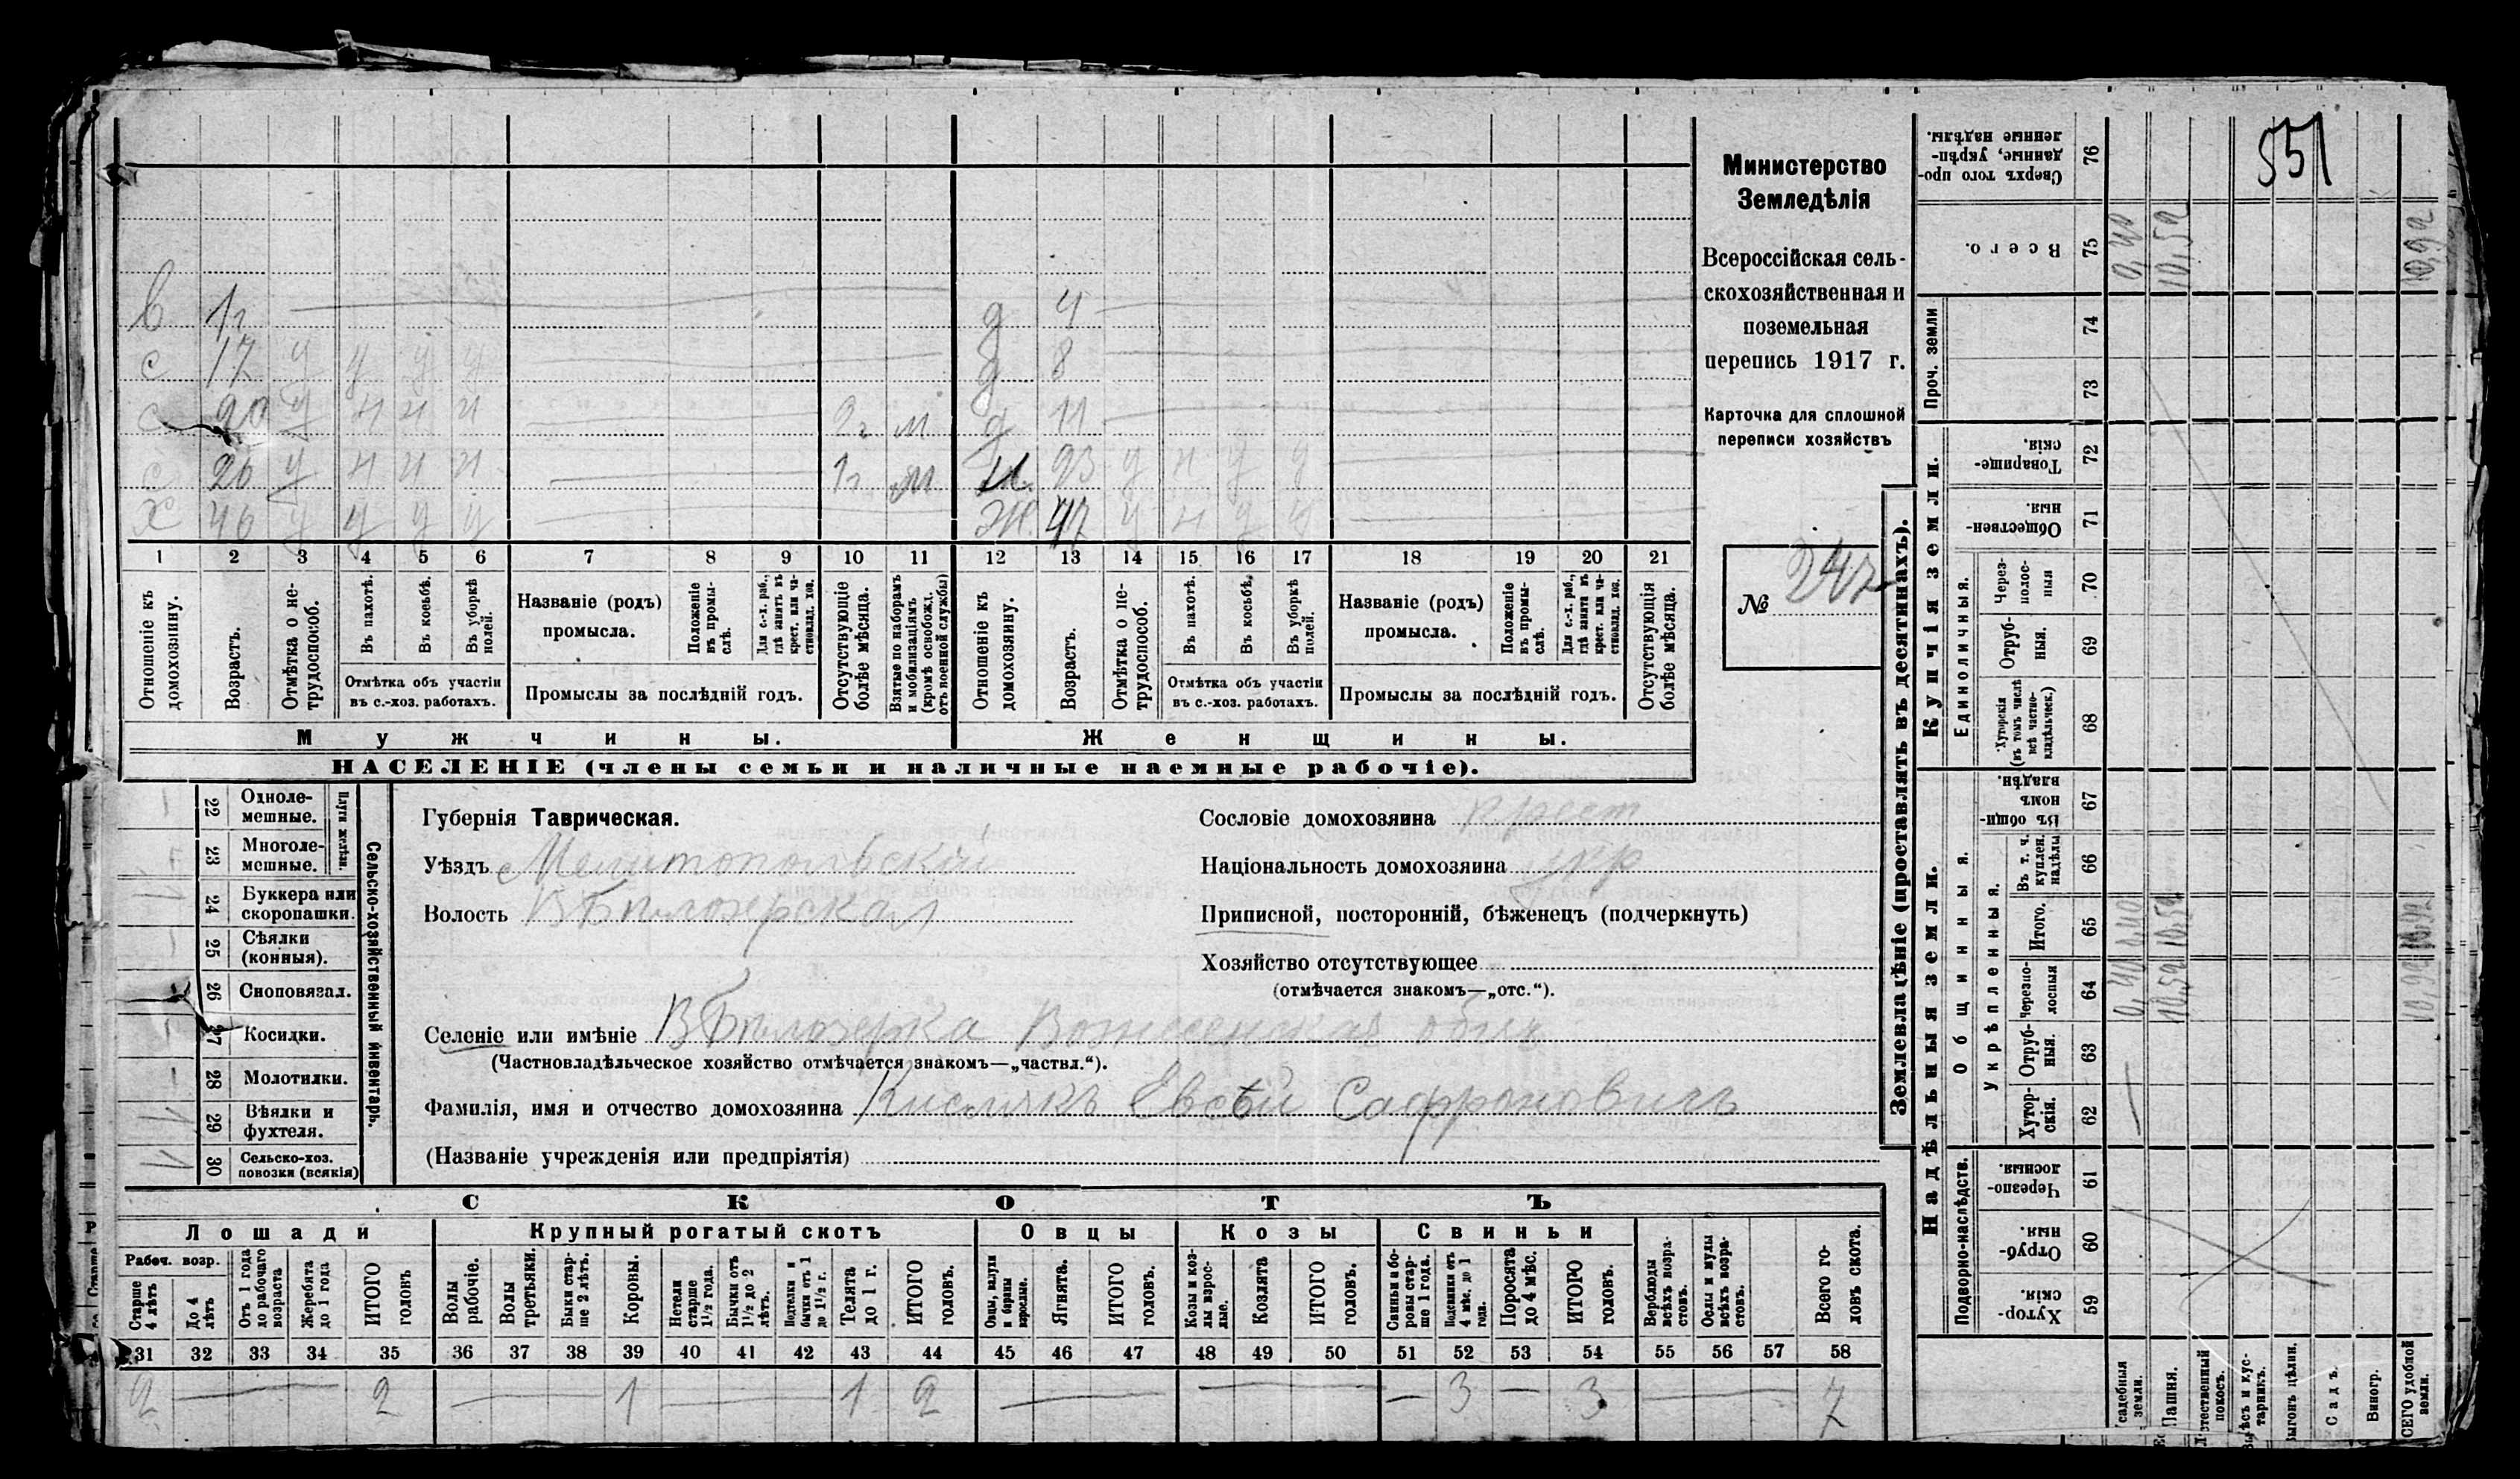 551
Министерство
Земледѣлія
Всероссійская сель-
скохозяйственная и
поземельная
перепись 1917 г.
Карточка для сплошной
переписи хозяйствъ
№ 247
в 1г д 4
с 17 у у у у д 8
с 20 у н н н 2г м д 11
с 26 у н н н 1г м н. 23 у н у у
х 46 у у у у ж. 47 у н у у
1 2 3 4 5 6 7 8 9 10 11 12 13 14 15 16 17 18 19 20 21
Отношеніе къ домохозяину.
Возрастъ.
Отмѣтка о не-трудоспособ.
Въ пахотѣ.
Въ косьбѣ.
Въ уборкѣ полей.
Отмѣтка объ участіи
въ с.-хоз. работахъ.
Названіе (родъ)
промысла.
Положеніе въ промы-слѣ.
Для с.-х. раб., гдѣ занятъ въ крест. или ча-стновлад. хоз.
Промыслы за послѣдній годъ.
Отсутствующіе болѣе мѣсяца.
Взятые по наборамъ и мобилизаціямъ (кромѣ освобожд. отъ военной службы)
Отношеніе къ домохозяину.
Возрастъ.
Отмѣтка о не-трудоспособ.
Въ пахотѣ.
Въ косьбѣ.
Въ уборкѣ полей.
Отмѣтка объ участіи
въ с.-хоз. работахъ.
Названіе (родъ)
промысла.
Положеніе въ промы-слѣ.
Для с.-х. раб., гдѣ занята въ крест. или ча-стновлад. хоз.
Промыслы за послѣдній годъ.
Отсутствующія болѣе мѣсяца.
Мужчины. Женщины.
НАСЕЛЕНІЕ (члены семьи и наличные наемные рабочіе).
Сельско-хозяйственный инвентарь.
Плуги желѣзн.
22 Одноле-мешные.
23 Многоле-мешные.
24 Буккера или скоропашки.
25 Сѣялки (конныя).
26 Сноповязал.
27 Косилки.
28 Молотилки.
29 Вѣялки и фухтеля.
30 Сельско-хоз. повозки (всякія)
Губернія Таврическая.
Уѣздъ Мелитопольскій
Волость В Бѣлозерская
Сословіе домохозяина крест
Національность домохозяина укр
Приписной, посторонній, бѣженецъ (подчеркнуть)
Хозяйство отсутствующее
(отмѣчается знакомъ—„отс.“).
Селеніе или имѣніе В Бѣлозерка Вознесенская общ
(Частновладѣльческое хозяйство отмѣчается знакомъ—„частвл.“).
Фамилія, имя и отчество домохозяина Кислякъ Евсѣй Сафроновичъ
(Названіе учрежденія или предпріятія)
СКОТЪ
Лошади Крупный рогатый скотъ Овцы Козы Свиньи
Рабоч. возр.
Старше 4 лѣтъ
До 4 лѣтъ
Отъ 1 года до рабочаго возраста
Жеребята до 1 года
ИТОГО головъ
Волы рабочіе.
Волы третьяки.
Быки стар-ше 2 лѣтъ.
Коровы.
Нетели старше 1½ года.
Бычки отъ 1½ до 2 лѣтъ.
Подтелки и бычки отъ 1 до 1½ г.
Телята до 1 г.
ИТОГО головъ.
Овцы, валухи и бараны взрослые.
Ягнята.
ИТОГО головъ.
Козы и коз-лы взрос-лые.
Козлята
ИТОГО головъ.
Свиньи и бо-ровы стар-ше 1 года.
Подсвинки отъ 4 мѣс. до 1 года.
Поросята до 4 мѣс.
ИТОГО головъ.
Верблюды всѣхъ возра-стовъ.
Ослы и мулы всѣхъ возра-стовъ.
Всего го-ловъ скота.
31 32 33 34 35 36 37 38 39 40 41 42 43 44 45 46 47 48 49 50 51 52 53 54 55 56 57 58
2 — 2 — 1 — 1 2 — — — 3 — 3 — 7
Землевладѣніе (проставлять въ десятинахъ).
Надѣльныя земли.
Купчія земли.
Проч. земли
Подворно-наслѣдств.
Общинныя.
Укрѣпленныя.
Единоличныя.
59 Хутор-скія.
60 Отруб-ныя.
61 Черезпо-лосныя.
62 Хутор-скія.
63 Отруб-ныя.
64 Черезпо-лосныя
65 Итого.
66 Въ т. ч. куплен. надѣлы
67 Въ общи-номъ владѣн.
68 Хуторскія (въ томъ числѣ всѣ частно-владѣльческ.)
69 Отруб-ныя.
70 Через-полос-ныя
71 Обществен-ныя.
72 Товарище-скія.
73
74
75 Всего.
76 Сверхъ того про-данные, укрѣп-ленные надѣлы.
садебныя земли.
Пашня.
тественный покосъ.
ѣсъ и кус-тарникъ.
ыгонъ цѣлин.
Садъ.
Виногр.
СЕГО удобной земли.
0,40 0,40 0,40
10,52 10,52 10,52
10,92 10,92 10,92